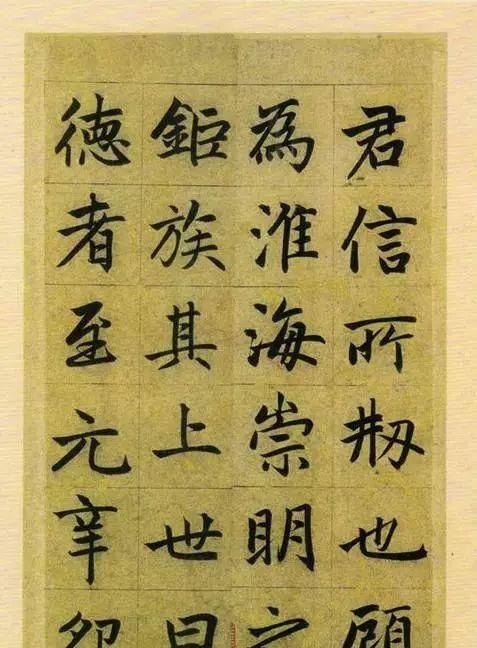 君信所剙也顧
為淮海崇明之
鉅族其上世曰
德者至元辛卯